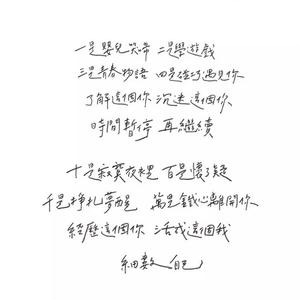 一是嬰兒哭啼 二是學遊戲
三是青春物語 四是碰巧遇見你
了解這個你 沉迷這個你
時間暫停 再繼續
十是寂寞夜裡 百是懷了疑
千是掙扎夢醒 萬是鐵心離開你
經歷這個你 活 這個我
細數 自己